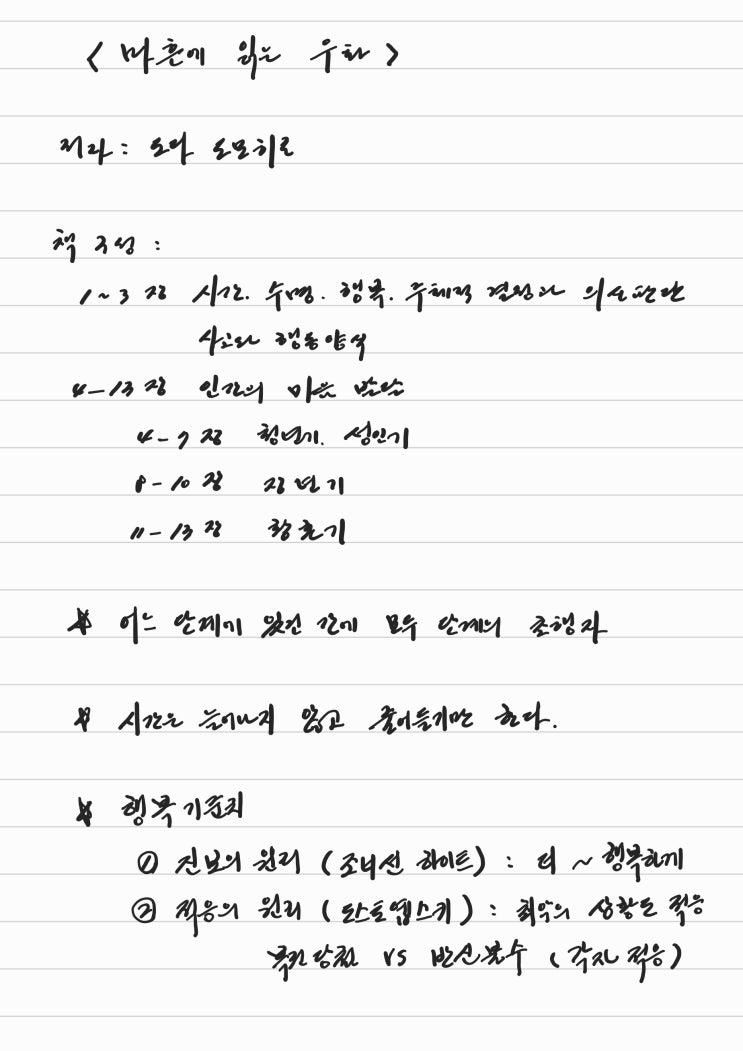 < 마흔에 읽는 우화 >
저자 : 도다 도모히로
책 구성 :
1~3 장 시간. 수명. 행복. 주체적 결정과 의사판단
사고와 행동양식
4-13 장 인간의 마음 발달
4-7 장 청년기. 성인기
8-10 장 장년기
11-13 장 황혼기
* 어느 단계에 있건 간에 모두 단계의 초행자
* 시간은 늘어나지 않고 줄어들기만 한다.
* 행복기준치
① 진보의 원리 (조너선 하이트) : 더 ~ 행복하게
② 적응의 원리 (도스토옙스키) : 최악의 상황도 적응
복권당첨 vs 반신불수 (각자 적응)